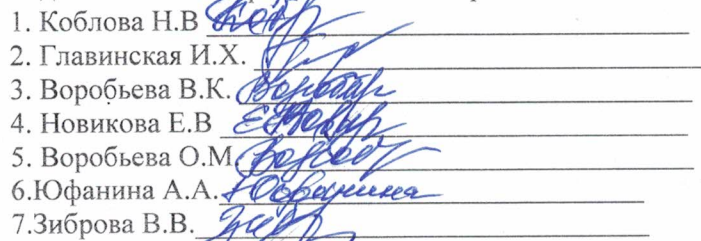 1. Коблова Н.В
2. Главинская И.Х.
3. Воробьева В.К.
4. Новикова Е.В
5. Воробьева О.М.
6.Юфанина А.А. Юфанина
7.Зиброва В.В.